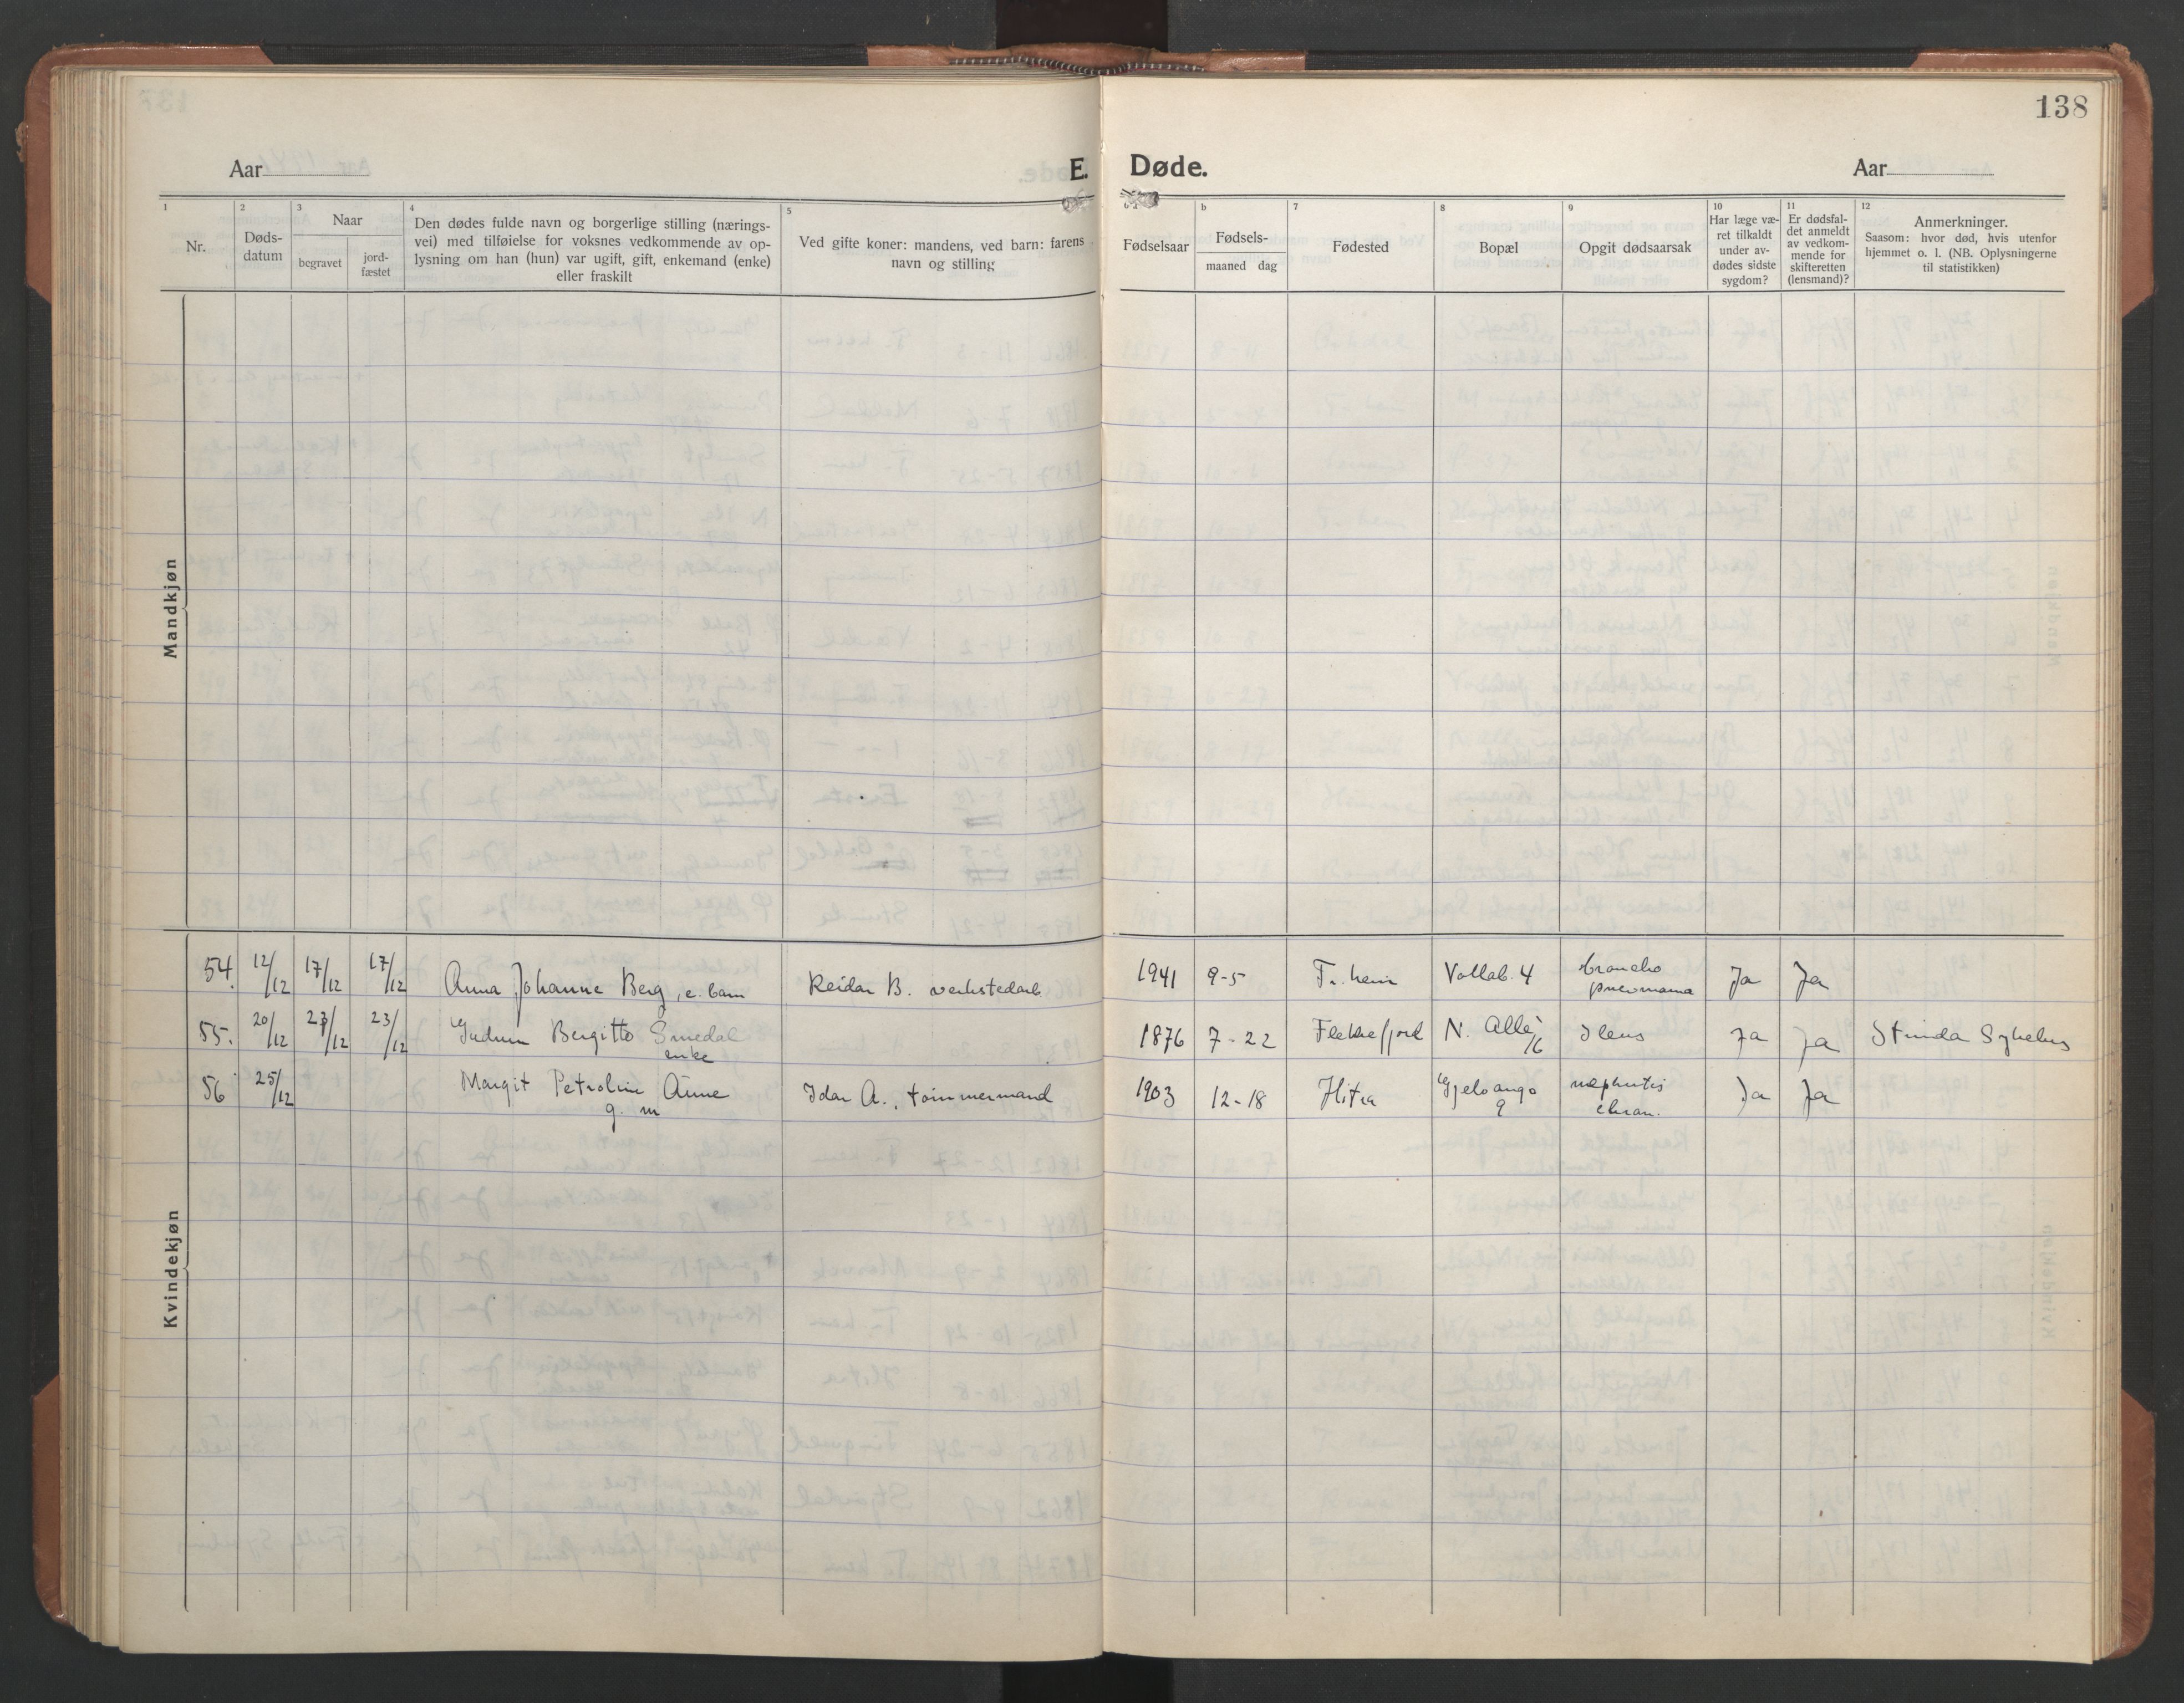 138
Aar
E. Døde.
Aar
1 2 3 4 5 b 7 8 9 10 11 12
Nr.
Døds-
datum
Naar
begravet
jord-
fæstet
Den dødes fulde navn og borgerlige stilling (nærings-
vei) med tilføielse for voksnes vedkommende av op-
lysning om han (hun) var ugift, gift, enkemand (enke)
eller fraskilt
Ved gifte koner: mandens, ved barn: farens
navn og stilling
Fødselsaar
Fødsels-
maaned dag
Fødested
Bopæl
Opgit dødsaarsak
Har læge væ-
ret tilkaldt
under av-
dødes sidste
sygdom?
Er dødsfal-
det anmeldt
av vedkom-
mende for
skifteretten
(lensmand)?
Anmerkninger.
Saasom: hvor død, hvis utenfor
hjemmet o. l. (NB. Oplysningerne
til statistikken)
Mandkjøn
Kvindekjøn
54. 12/12 17/12 17/12 Anna Johanne Berg, e. barn Reidar B. verkstedarb. 1941 9-5 Tr.heim Vollab. 4 broncho Ja Ja
pneumonia
55. 20/12 23/12 23/12 Gudrun Bergitte Smedal 1876 7-22 Flekkefjord N. Allé 16 Ileus Ja Ja Strinda Sykehus
enke
56 25/12 Margit Petroline Aune Idar A., tømmermand 1903 12-18 Hitra 9 nephritis Ja Ja
g. m chron.